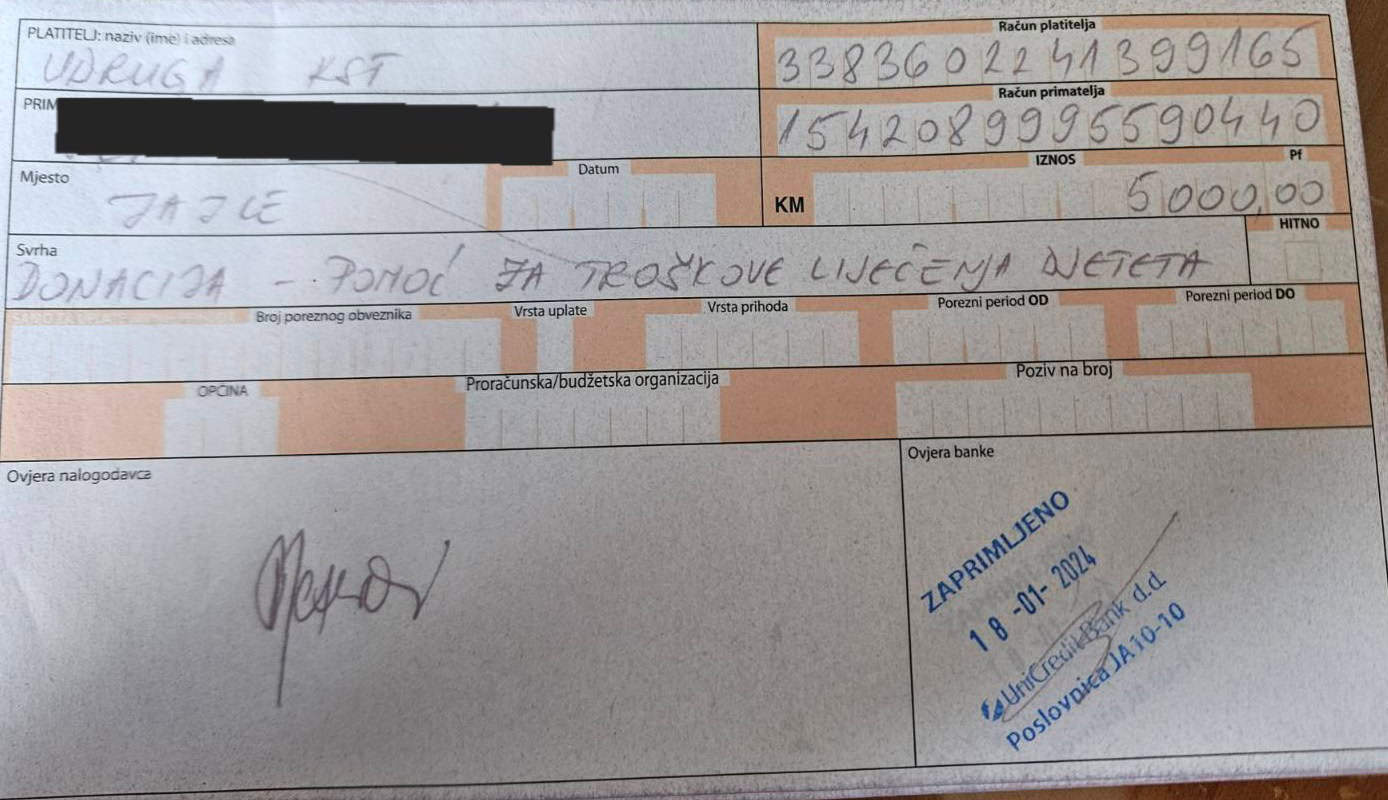 PLATITELJ: naziv (ime) i adresa
UDRUGA KST
Račun platitelja
3383602241399165
PRIM
Račun primatelja
1542089995590440
Mjesto
JAJCE
Datum
IZNOS
Pf
KM
5000,00
Svrha
HITNO
DONACIJA - POMOĆ ZA TROŠKOVE LIJEČENJA DJETETA
Broj poreznog obveznika
Vrsta uplate
Vrsta prihoda
Porezni period OD
Porezni period DO
OPĆINA
Proračunska/budžetska organizacija
Poziv na broj
Ovjera nalogodavca
Ovjera banke
ZAPRIMLJENO
18 -01- 2024
UniCredit Bank d.d.
Poslovnica JA 10-10